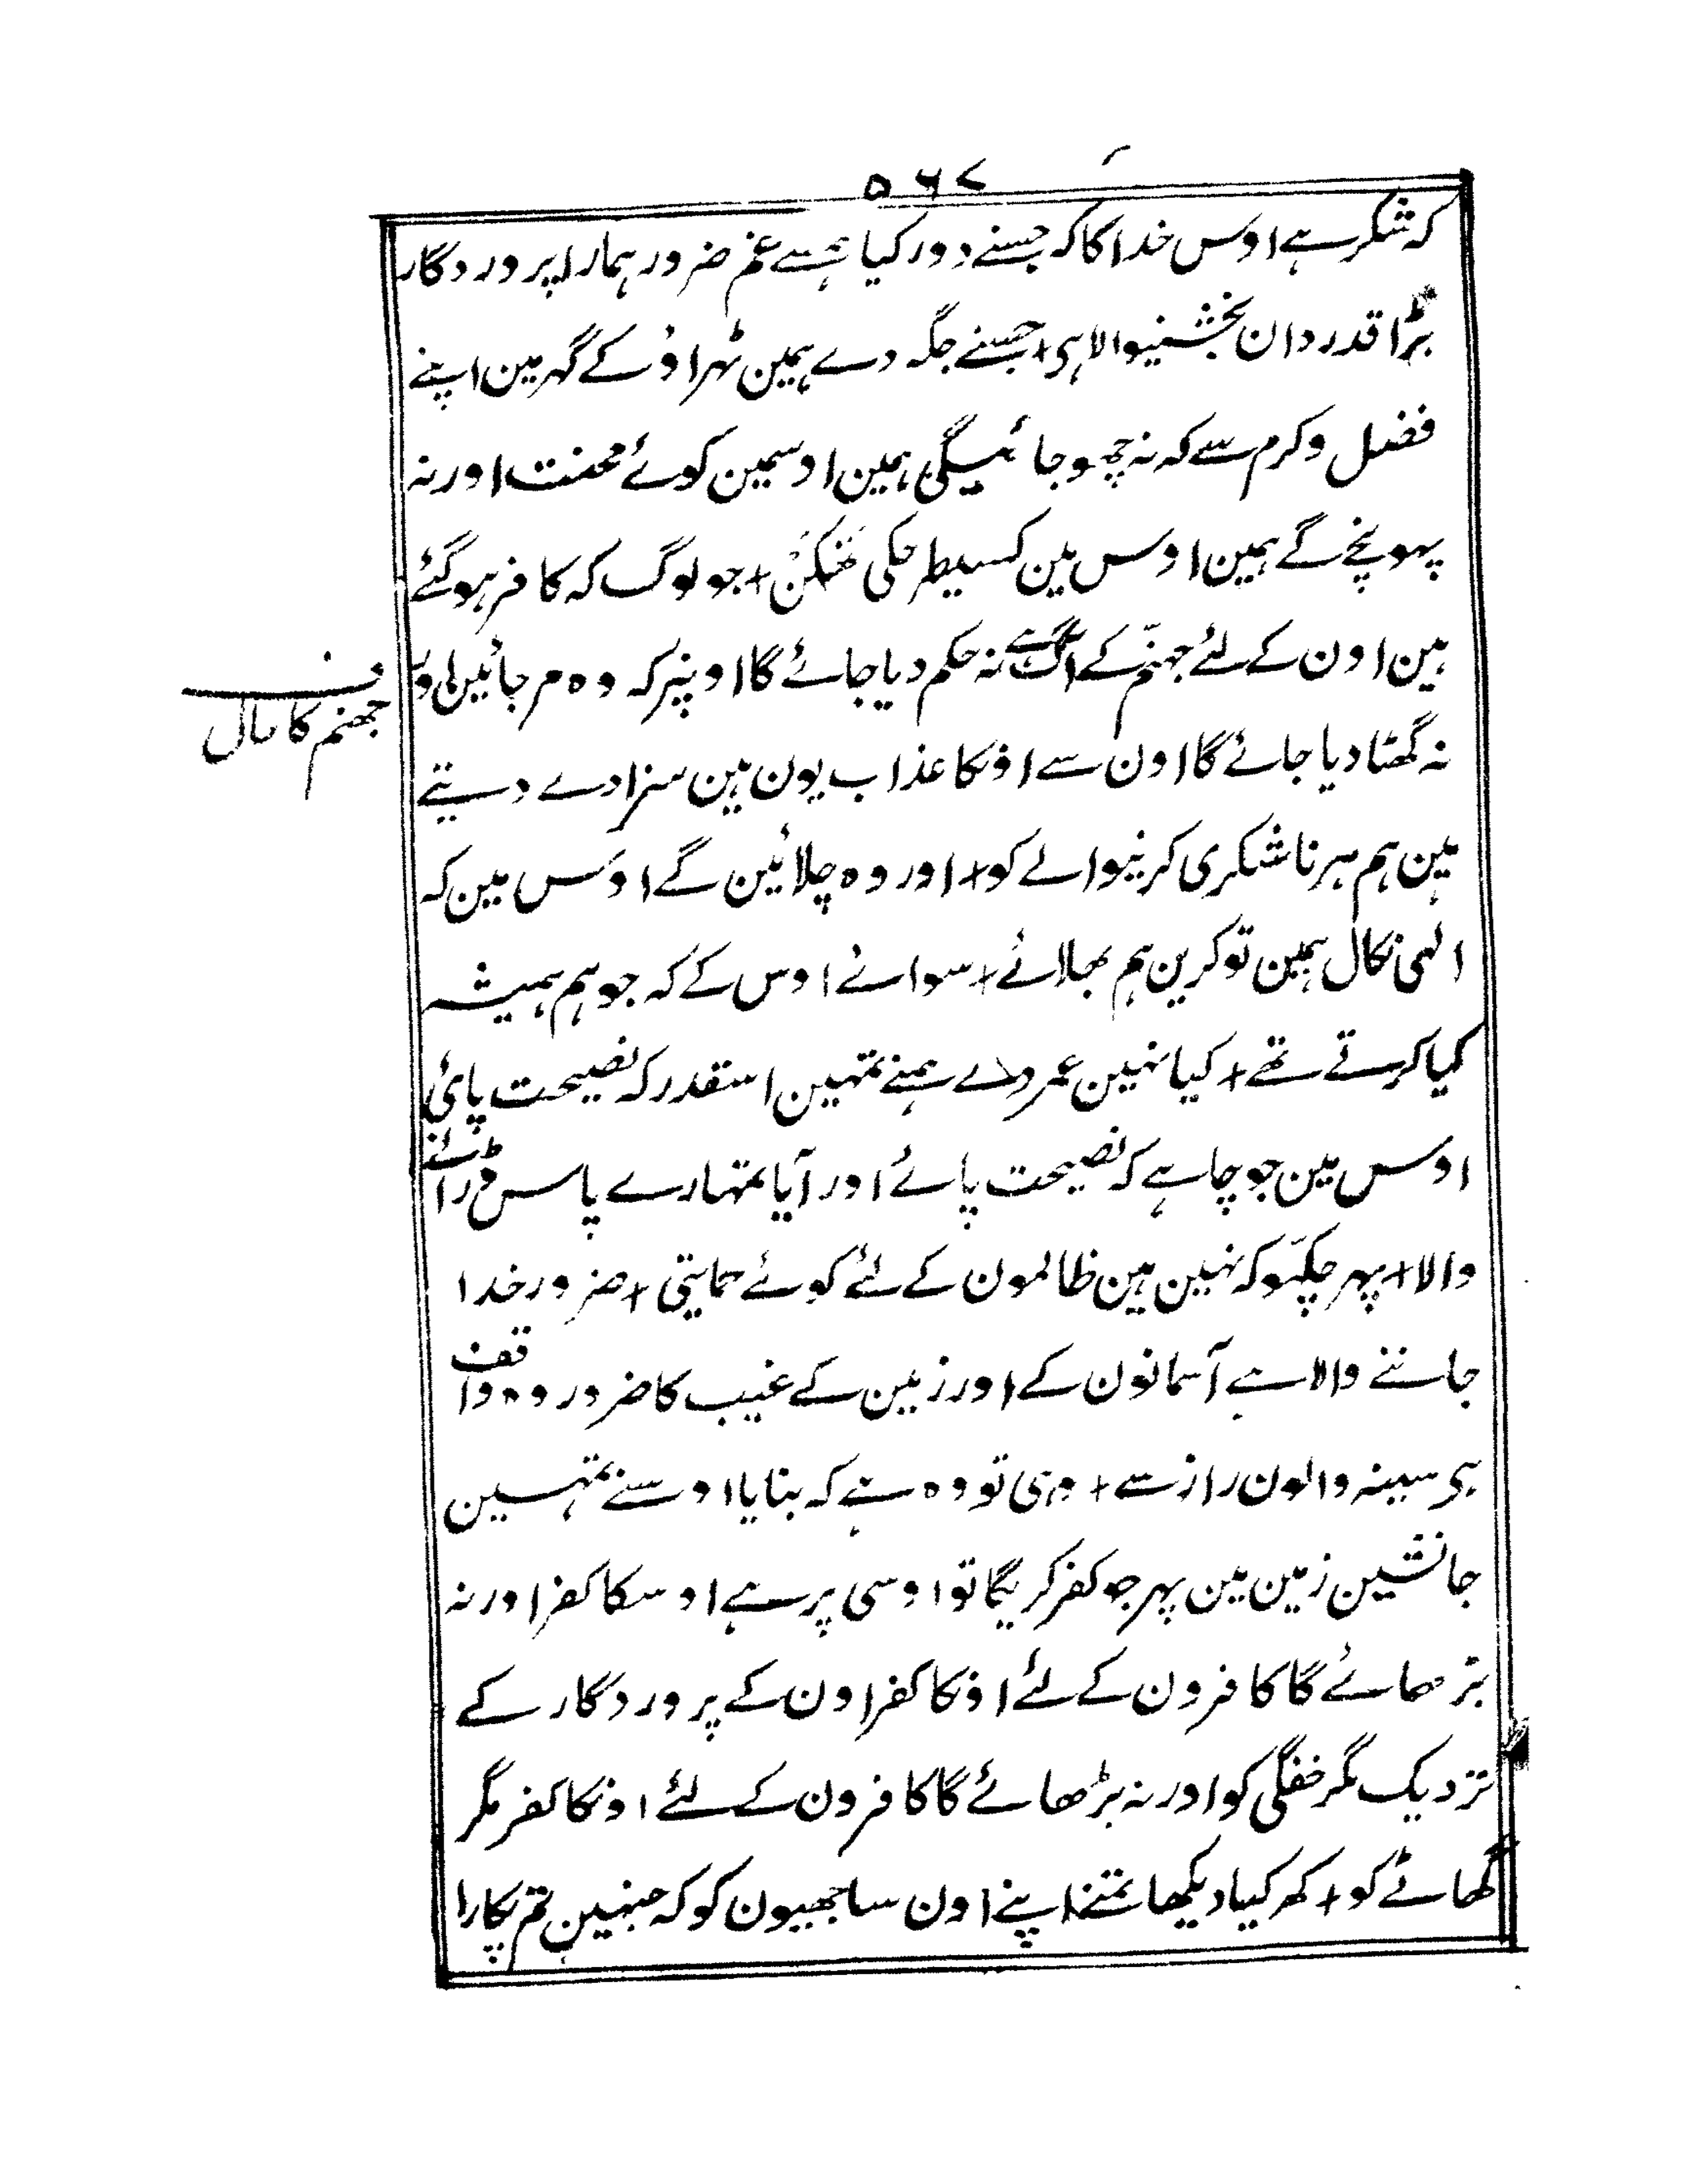 ۵۶۷
کہ شکر ہے اوس خدا کا کہ جسنے دور کیا ہمسے غم ضرور ہمارا پروردگار
بڑا قدردان بخشنیوالا ہی + جسنے جگہ دے ہمین ٹہراؤ کے گہر مین اپنے
فضل وکرم سے کہ نہ چھوجائیگی ہمین اوسمین کوئے محنت اور نہ
پہونچے گے ہمین اوس مین کسیطرحکی تھکن + جو لوگ کہ کافر ہوگئے
ہین اون کے لئے جہنّم کے آگ ہے نہ حکم دیا جائے گا اونپر کہ وہ مرجائین اور
ف
جھنم کا حال
نہ گھٹا دیا جائے گا اون سے اونکا عذاب یون ہین سزا دے دیتے
ہین ہم ہر ناشکری کرنیوالے کو + اور وہ چلائین گے اوس مین کہ
الہی نکال ہمین تو کرین ہم بھلائے + سوائے اوس کے کہ جو ہم ہمیشہ
کیا کرتے تھے + کیا نہین عمر دے ہمنے تمہین اسقدر کہ نصیحت پائی
اوس مین جو چاہے کہ نصیحت پائے اور آیا تمہارے پاس ڈرانے
والا + پہر چکہو کہ نہین ہین ظالمون کے لئے کوئے حمایتی + ضرور خدا
جاننے والا ہے آسمانون کے اور زمین کے غیب کا ضرور وہ واقف
ہی سینہ والون راز سے + وہی تو وہ ہے کہ بنایا اوسنے تمہین
جانشین زمین مین پہر جو کفر کریگا تو اوسی پر ہے اوسکا کفر اور نہ
بڑھائے گا کافرون کے لئے اونکا کفر اون کے پروردگار کے
نزدیک مگر خفگی کو اور نہ بڑھائے گا کافرون کے لئے اونکا کفر مگر
گھاٹے کو + کھہ کیا دیکھا تمنے اپنے اون ساجھیون کو کہ جنہین تم پکارا